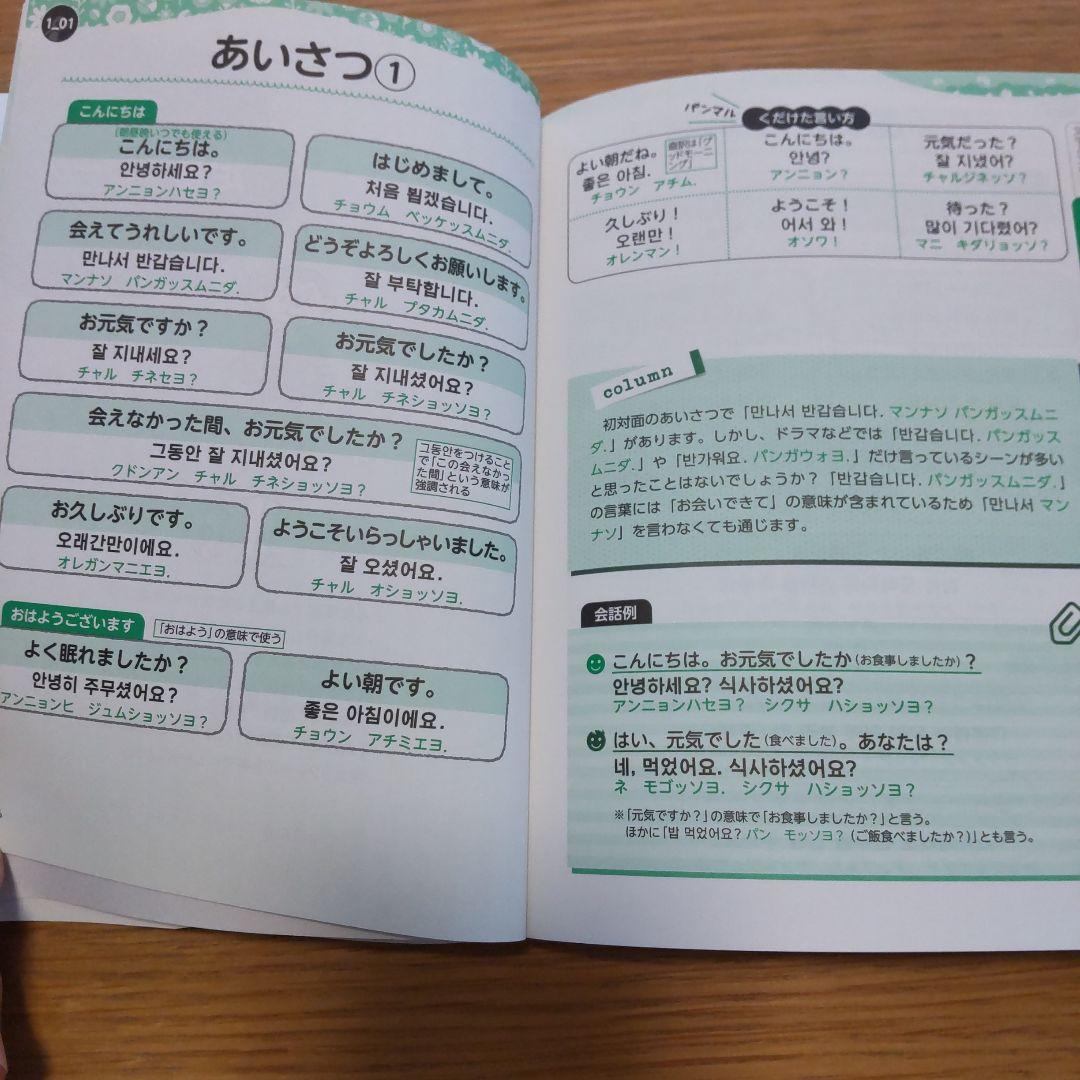 1_01
あいさつ①
こんにちは
(朝昼晩いつでも使える)
こんにちは。
안녕하세요?
アンニョンハセヨ?
はじめまして。
처음 뵙겠습니다.
チョウム ペッケッスムニダ.
会えてうれしいです。
만나서 반갑습니다.
マンナソ パンガッスムニダ.
どうぞよろしくお願いします。
잘 부탁합니다.
チャル プタカムニダ.
お元気ですか?
잘 지내세요?
チャル チネセヨ?
お元気でしたか?
잘 지내셨어요?
チャル チネショッソヨ?
会えなかった間、お元気でしたか?
그동안 잘 지내셨어요?
クドンアン チャル チネショッソヨ?
그동안をつけること
で「この会えなかっ
た間」という意味が
強調される
お久しぶりです。
오래간만이에요.
オレガンマニエヨ.
ようこそいらっしゃいました。
잘 오셨어요.
チャル オショッソヨ.
おはようございます
「おはよう」の意味で使う
よく眠れましたか?
안녕히 주무셨어요?
アンニョンヒ ジュムショッソヨ?
よい朝です。
좋은 아침이에요.
チョウン アチミエヨ.
パンマル
くだけた言い方
よい朝だね。
좋은 아침.
チョウン アチム.
直訳は「グ
ッドモーニ
ング」
こんにちは。
안녕?
アンニョン?
元気だった?
잘 지냈어?
チャルジネッソ?
久しぶり!
오랜만!
オレンマン!
ようこそ!
어서 와!
オソワ!
待った?
많이 기다렸어?
マニ キダリョッソ?
column
初対面のあいさつで「만나서 반갑습니다. マンナソ パンガッスムニ
ダ.」があります。しかし、ドラマなどでは「반갑습니다. パンガッス
ムニダ.」や「반가워요. パンガウォヨ.」だけ言っているシーンが多い
と思ったことはないでしょうか?「반갑습니다. パンガッスムニダ.」
の言葉には「お会いできて」の意味が含まれているため「만나서 マン
ナソ」を言わなくても通じます。
会話例
こんにちは。お元気でしたか(お食事しましたか)?
안녕하세요? 식사하셨어요?
アンニョンハセヨ? シクサ ハショッソヨ?
はい、元気でした(食べました)。あなたは?
네, 먹었어요. 식사하셨어요?
ネ モゴッソヨ. シクサ ハショッソヨ?
※「元気ですか?」の意味で「お食事しましたか?」と言う。
ほかに「밥 먹었어요? パン モッソヨ? (ご飯食べましたか?)」とも言う。